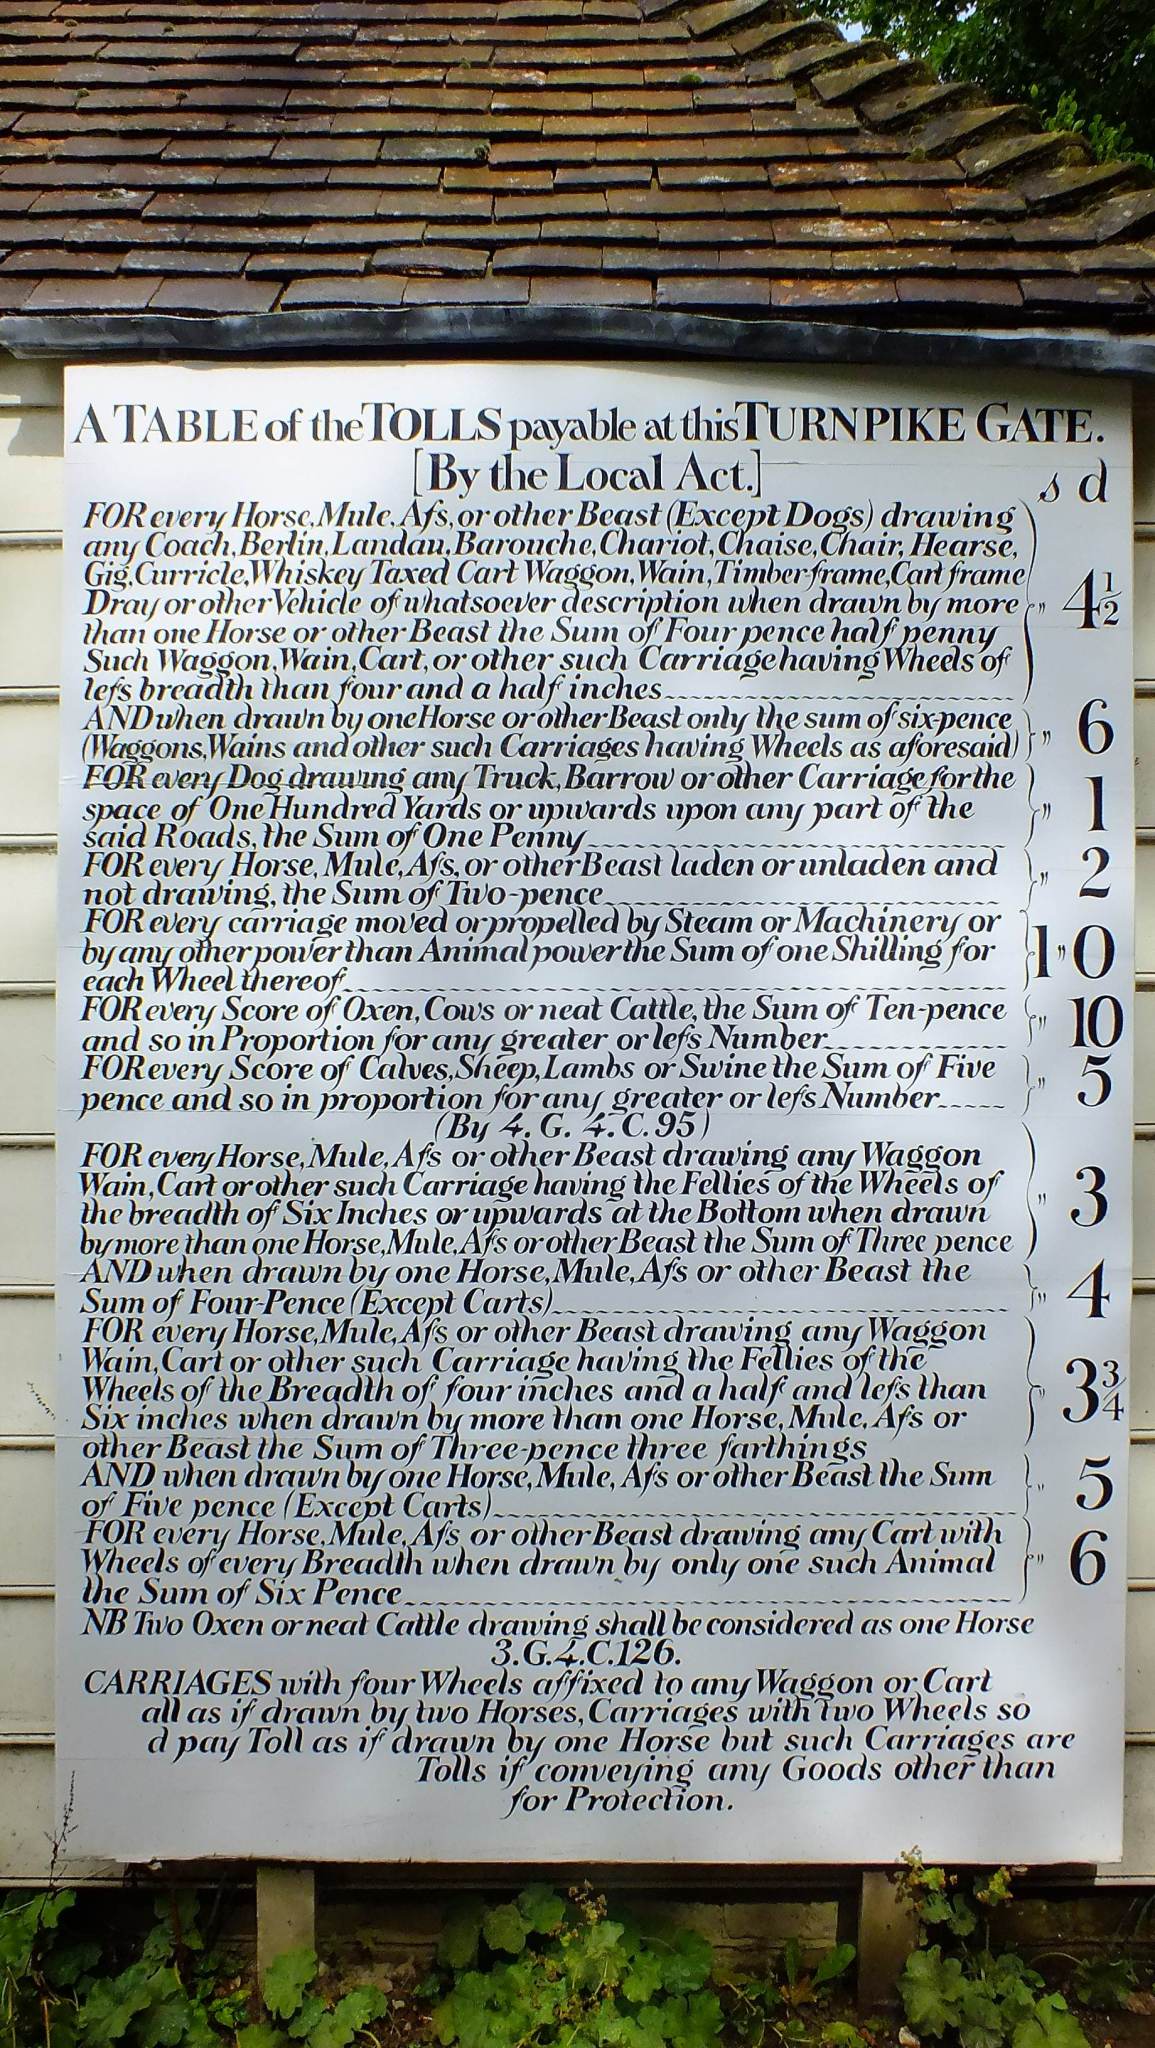 A TABLE of the TOLLS payable at this TURNPIKE GATE.
[By the Local Act.]
s d
FOR every Horse, Mule, Afs, or other Beast (Except Dogs) drawing
any Coach, Berlin, Landau, Barouche, Chariot, Chaise, Chair, Hearse,
Gig, Curricle, Whiskey Taxed Cart Waggon, Wain, Timber-frame, Cart frame
Dray or other Vehicle of whatsoever description when drawn by more " 4½
than one Horse or other Beast the Sum of Four pence half penny
Such Waggon, Wain, Cart, or other such Carriage having Wheels of
lefs breadth than four and a half inches
AND when drawn by one Horse or other Beast only the sum of six-pence " 6
(Waggons, Wains and other such Carriages having Wheels as aforesaid)
FOR every Dog drawing any Truck, Barrow or other Carriage for the
space of One Hundred Yards or upwards upon any part of the " 1
said Roads, the Sum of One Penny
FOR every Horse, Mule, Afs, or other Beast laden or unladen and " 2
not drawing, the Sum of Two-pence
FOR every carriage moved or propelled by Steam or Machinery or
by any other power than Animal power the Sum of one Shilling for 1 " 0
each Wheel thereof
FOR every Score of Oxen, Cows or neat Cattle, the Sum of Ten-pence " 10
and so in Proportion for any greater or lefs Number
FOR every Score of Calves, Sheep, Lambs or Swine the Sum of Five " 5
pence and so in proportion for any greater or lefs Number
(By 4. G. 4. C. 95)
FOR every Horse, Mule, Afs or other Beast drawing any Waggon
Wain, Cart or other such Carriage having the Fellies of the Wheels of " 3
the breadth of Six Inches or upwards at the Bottom when drawn
by more than one Horse, Mule, Afs or other Beast the Sum of Three pence
AND when drawn by one Horse, Mule, Afs or other Beast the " 4
Sum of Four-Pence (Except Carts)
FOR every Horse, Mule, Afs or other Beast drawing any Waggon
Wain, Cart or other such Carriage having the Fellies of the
Wheels of the Breadth of four inches and a half and lefs than " 3¾
Six inches when drawn by more than one Horse, Mule, Afs or
other Beast the Sum of Three-pence three farthings
AND when drawn by one Horse, Mule, Afs or other Beast the Sum " 5
of Five pence (Except Carts)
FOR every Horse, Mule, Afs, or other Beast drawing any Cart with
Wheels of every Breadth when drawn by only one such Animal " 6
the Sum of Six Pence
NB Two Oxen or neat Cattle drawing shall be considered as one Horse
3. G. 4. C. 126.
CARRIAGES with four Wheels affixed to any Waggon or Cart
all as if drawn by two Horses, Carriages with two Wheels so
d pay Toll as if drawn by one Horse but such Carriages are
Tolls if conveying any Goods other than
for Protection.